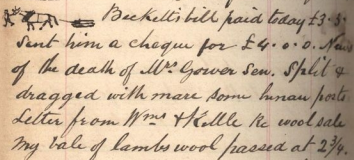 Beckett's bill paid today £3.3.
Sent him a cheque for £4.0.0. News
of the death of Mrs Gower Sen. Split &
dragged with mare some hunan posts
Letter from Wms & Kettle re wool sale
My bale of lambs wool passed at 2¾.